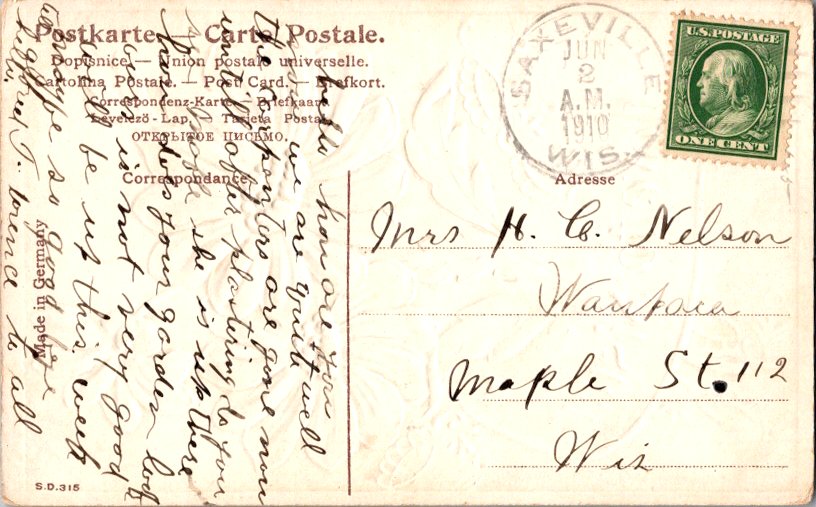 Postkarte. — Carte Postale.
Dopisnice. — Union postale universelle.
Cartolina Postale. — Post Card. — Briefkort.
Correspondenz-Karte. — Briefkaart.
Levelező-Lap. — Tarjeta Postal.
ОТКРЫТОЕ ПИСЬМО.
Correspondance
Adresse
SAXEVILLE
JUN
2
A.M.
1910
WIS.
U.S. POSTAGE
ONE CENT
Mrs H. C. Nelson
Waupaca
Maple St. 112
Wis
hello how are you
we are quit well
the Carpenters are gone now
until after plastering
she is up there
your garden look
is not very good
will be up this week
so good bye
to all
Made in Germany
S.D.315